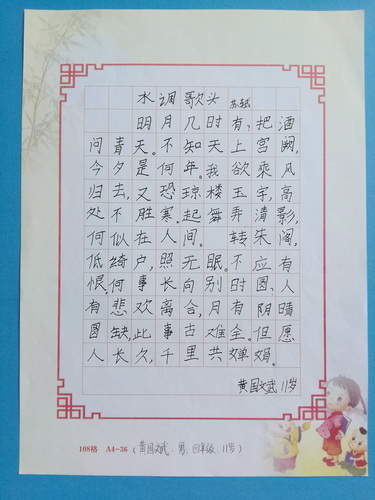 水调歌头 苏轼
明月几时有、把酒
问青天。不知天上宫阙,
今夕是何年。我欲乘风
归去,又恐琼楼玉宇,高
处不胜寒。起舞弄清影,
何似在人间。 转朱阁,
低绮户,照无眠。不应有
恨,何事长向别时圆、人
有悲欢离合,月有阴晴
圆缺,此事古难全。但愿
人长久,千里共婵娟。
黄国斌 11岁
108格 A4-36 (黄国斌、男、四年级、11岁)